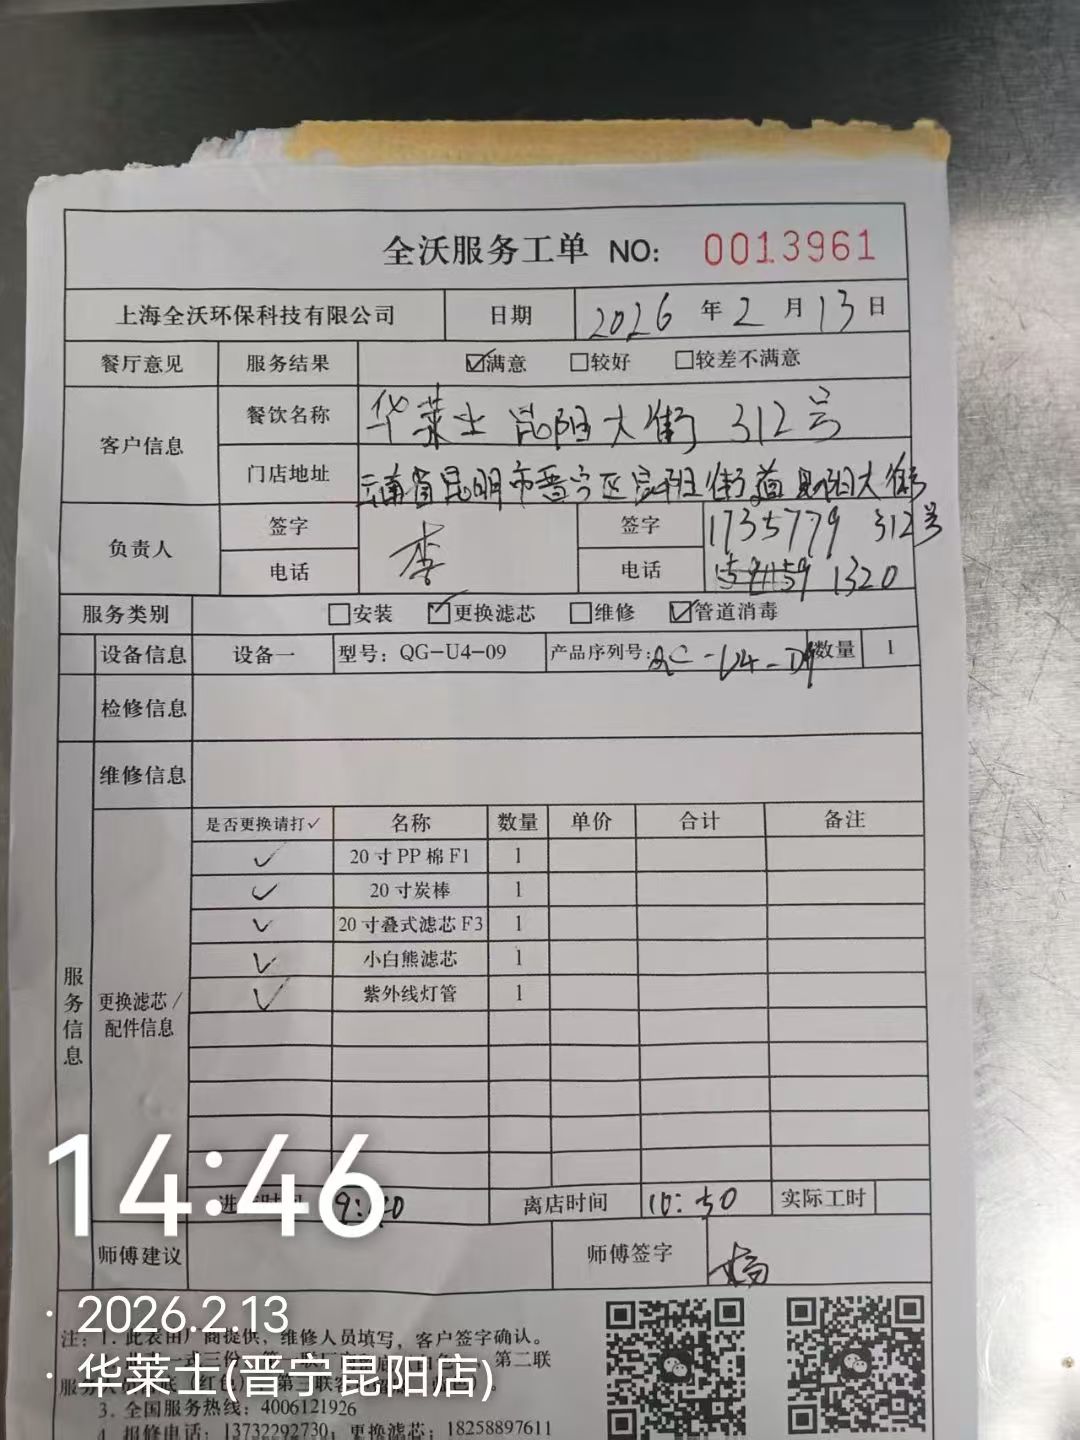 全沃服务工单 NO: 0013961
上海全沃环保科技有限公司 日期 2026 年 2 月 13 日
餐厅意见 服务结果 ☑满意 □较好 □较差不满意
客户信息 餐饮名称 华莱士 昆阳大街 312号
门店地址 云南省昆明市晋宁区昆阳街道昆阳大街
312号
负责人 签字 李 签字 1735779
电话 电话 1320
服务类别 □安装 ☑更换滤芯 □维修 ☑管道消毒
设备信息 设备一 型号: QG-U4-09 产品序列号: 数量 1
检修信息
维修信息
服务信息
更换滤芯/配件信息
是否更换请打✓ 名称 数量 单价 合计 备注
✓ 20寸PP棉F1 1
✓ 20寸炭棒 1
✓ 20寸叠式滤芯F3 1
✓ 小白熊滤芯 1
✓ 紫外线灯管 1
离店时间 10:50 实际工时
师傅建议 师傅签字 杨
14:46
· 2026.2.13
· 华莱士(晋宁昆阳店)
注: 1. 此表由厂商提供, 维修人员填写, 客户签字确认。
第二联
3. 全国服务热线: 4006121926
4. 报修电话: 13732292730; 更换滤芯: 18258897611